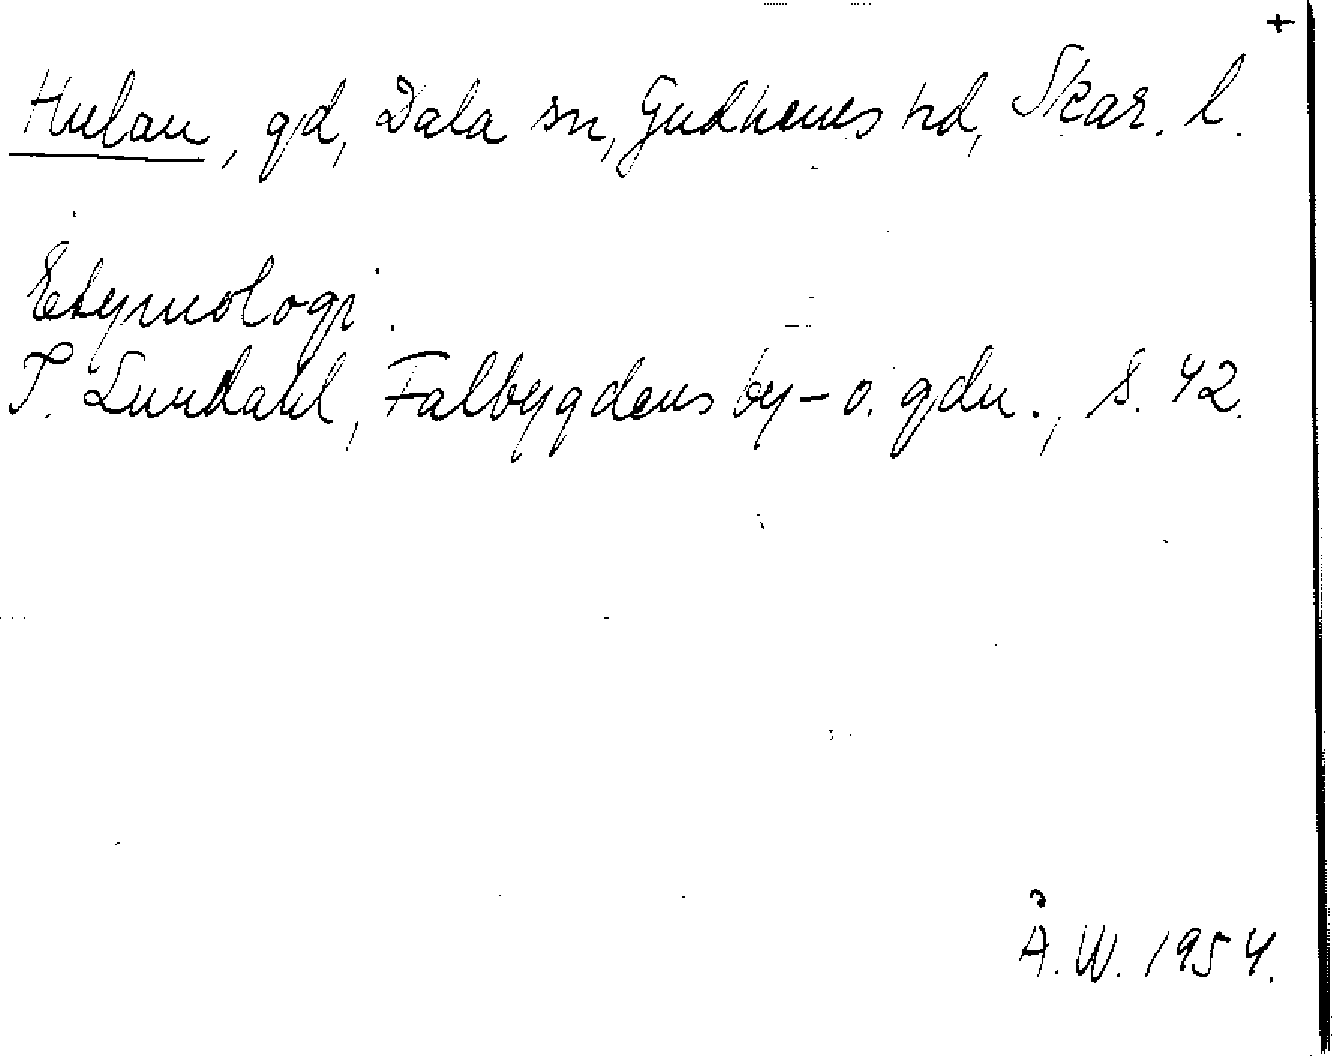 +
Hulan, gd, Dala sn, Gudhems hd, Skar. l.
Etymologi.
I. Lundahl, Falbygdens by- o. gdn., s. 42.
Å.W. 1954.